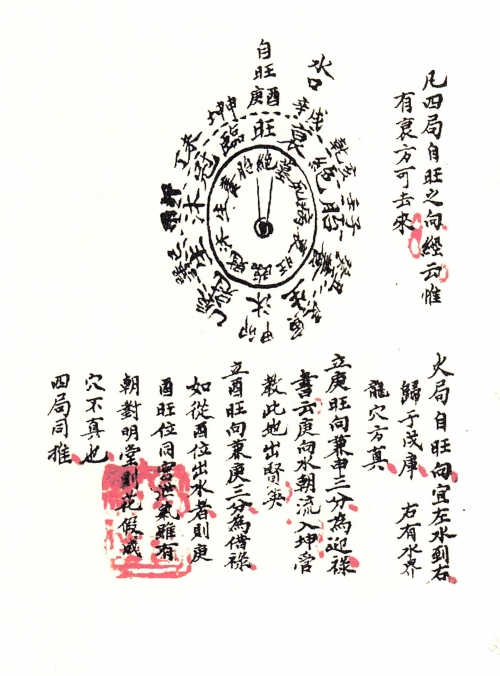 凡四局自旺之向經云惟
有衰方可去來
水口
自旺
庚酉
辛戌
乾亥
壬子
甲卯
坤申
旺
衰
絕
胎
生
沐
冠
臨
絕
墓
死
病
旺
臨
冠
沐
生
養
胎
火局自旺向宜左水到右
歸于戌庫 右有水界
龍穴方真
立庚旺向兼申三分為迎祿
書云庚向水朝流入坤管
教此地出賢英
立酉旺向兼庚三分為借祿
如從酉位出水者則庚
酉旺位同宮泄氣雖有
朝對明堂則花假
穴不真也
四局同推